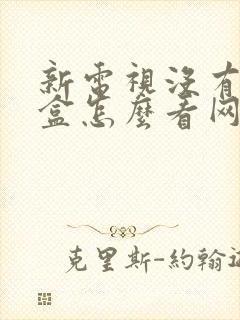 新電視沒有
盒怎麼看网
克里斯-約翰遜